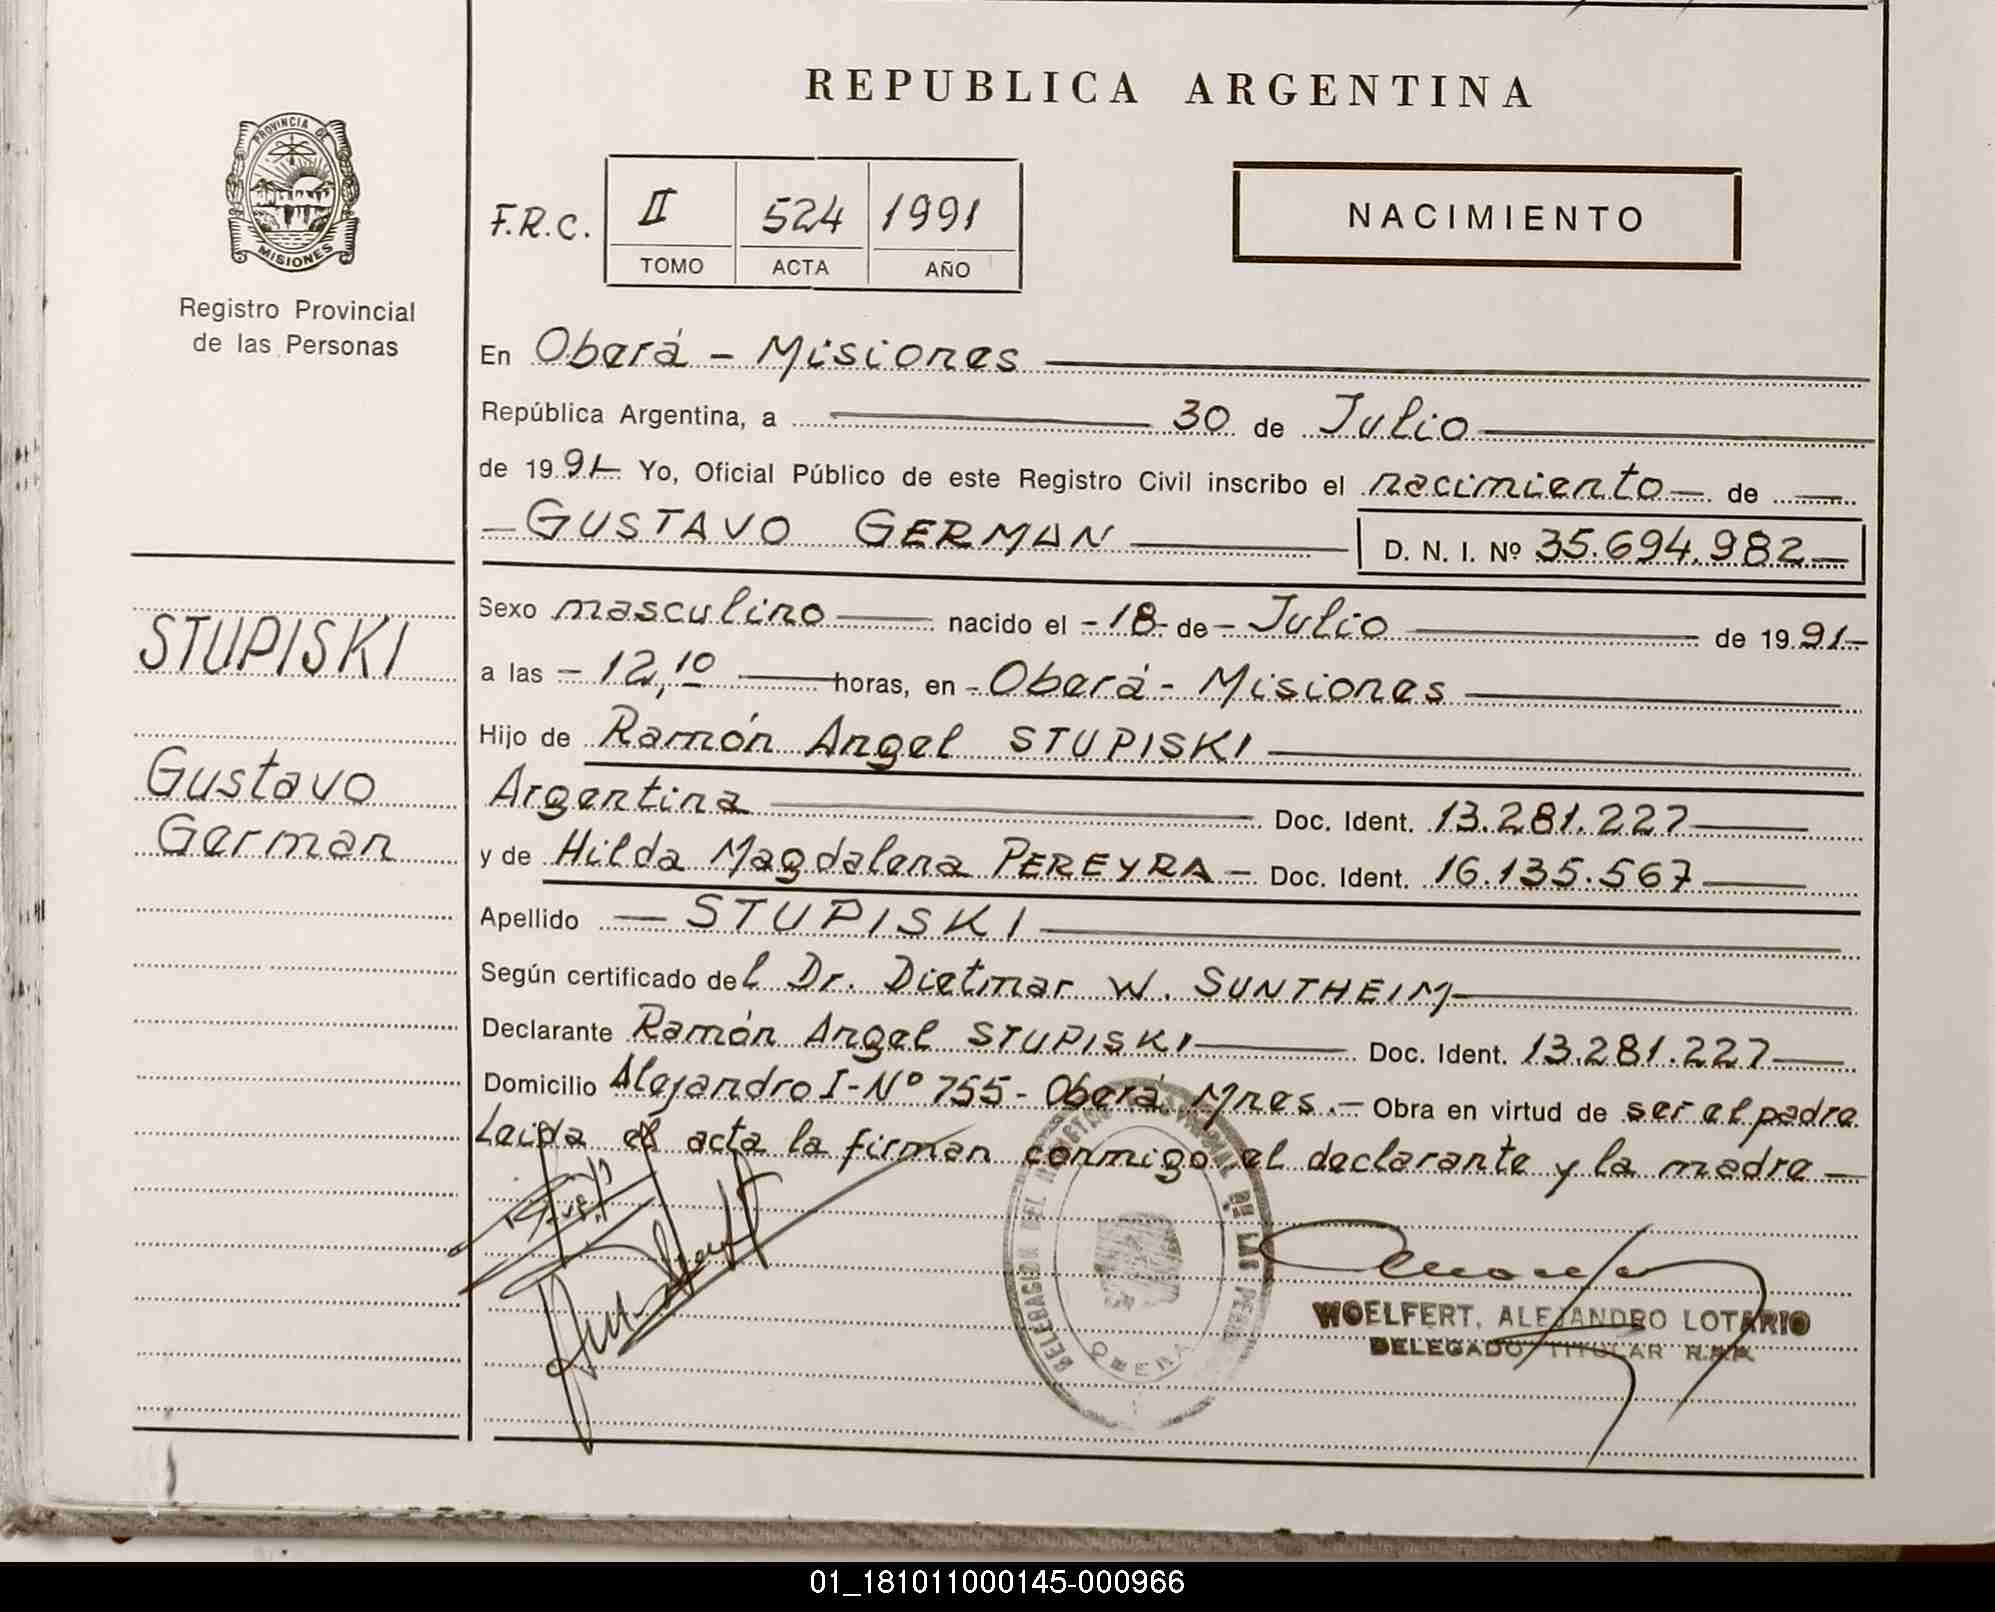 REPUBLICA ARGENTINA
PROVINCIA DE
MISIONES
Registro Provincial
de las Personas
F.R.C. II 524 1991
TOMO ACTA AÑO
NACIMIENTO
En Oberá - Misiones
República Argentina, a 30 de Julio
de 1991 Yo, Oficial Público de este Registro Civil inscribo el nacimiento de
GUSTAVO GERMAN D. N. I. Nº 35.694.982
Sexo masculino nacido el 18 de Julio de 1991
a las 12,10 horas, en Oberá - Misiones
Hijo de Ramón Angel STUPISKI
Argentina Doc. Ident. 13.281.227
y de Hilda Magdalena PEREYRA Doc. Ident. 16.135.567
Apellido STUPISKI
Según certificado del Dr. Dietmar W. SUNTHEIM
Declarante Ramón Angel STUPISKI Doc. Ident. 13.281.227
Domicilio Alejandro I - Nº 755 - Oberá Mnes. Obra en virtud de ser el padre
Leida el acta la firman conmigo el declarante y la madre
STUPISKI
Gustavo
German
DELEGACION DEL PROVINCIAL DE LAS
OBERA
WOELFERT, ALEJANDRO LOTARIO
DELEGADO TITULAR R.P.P.
01_181011000145-000966